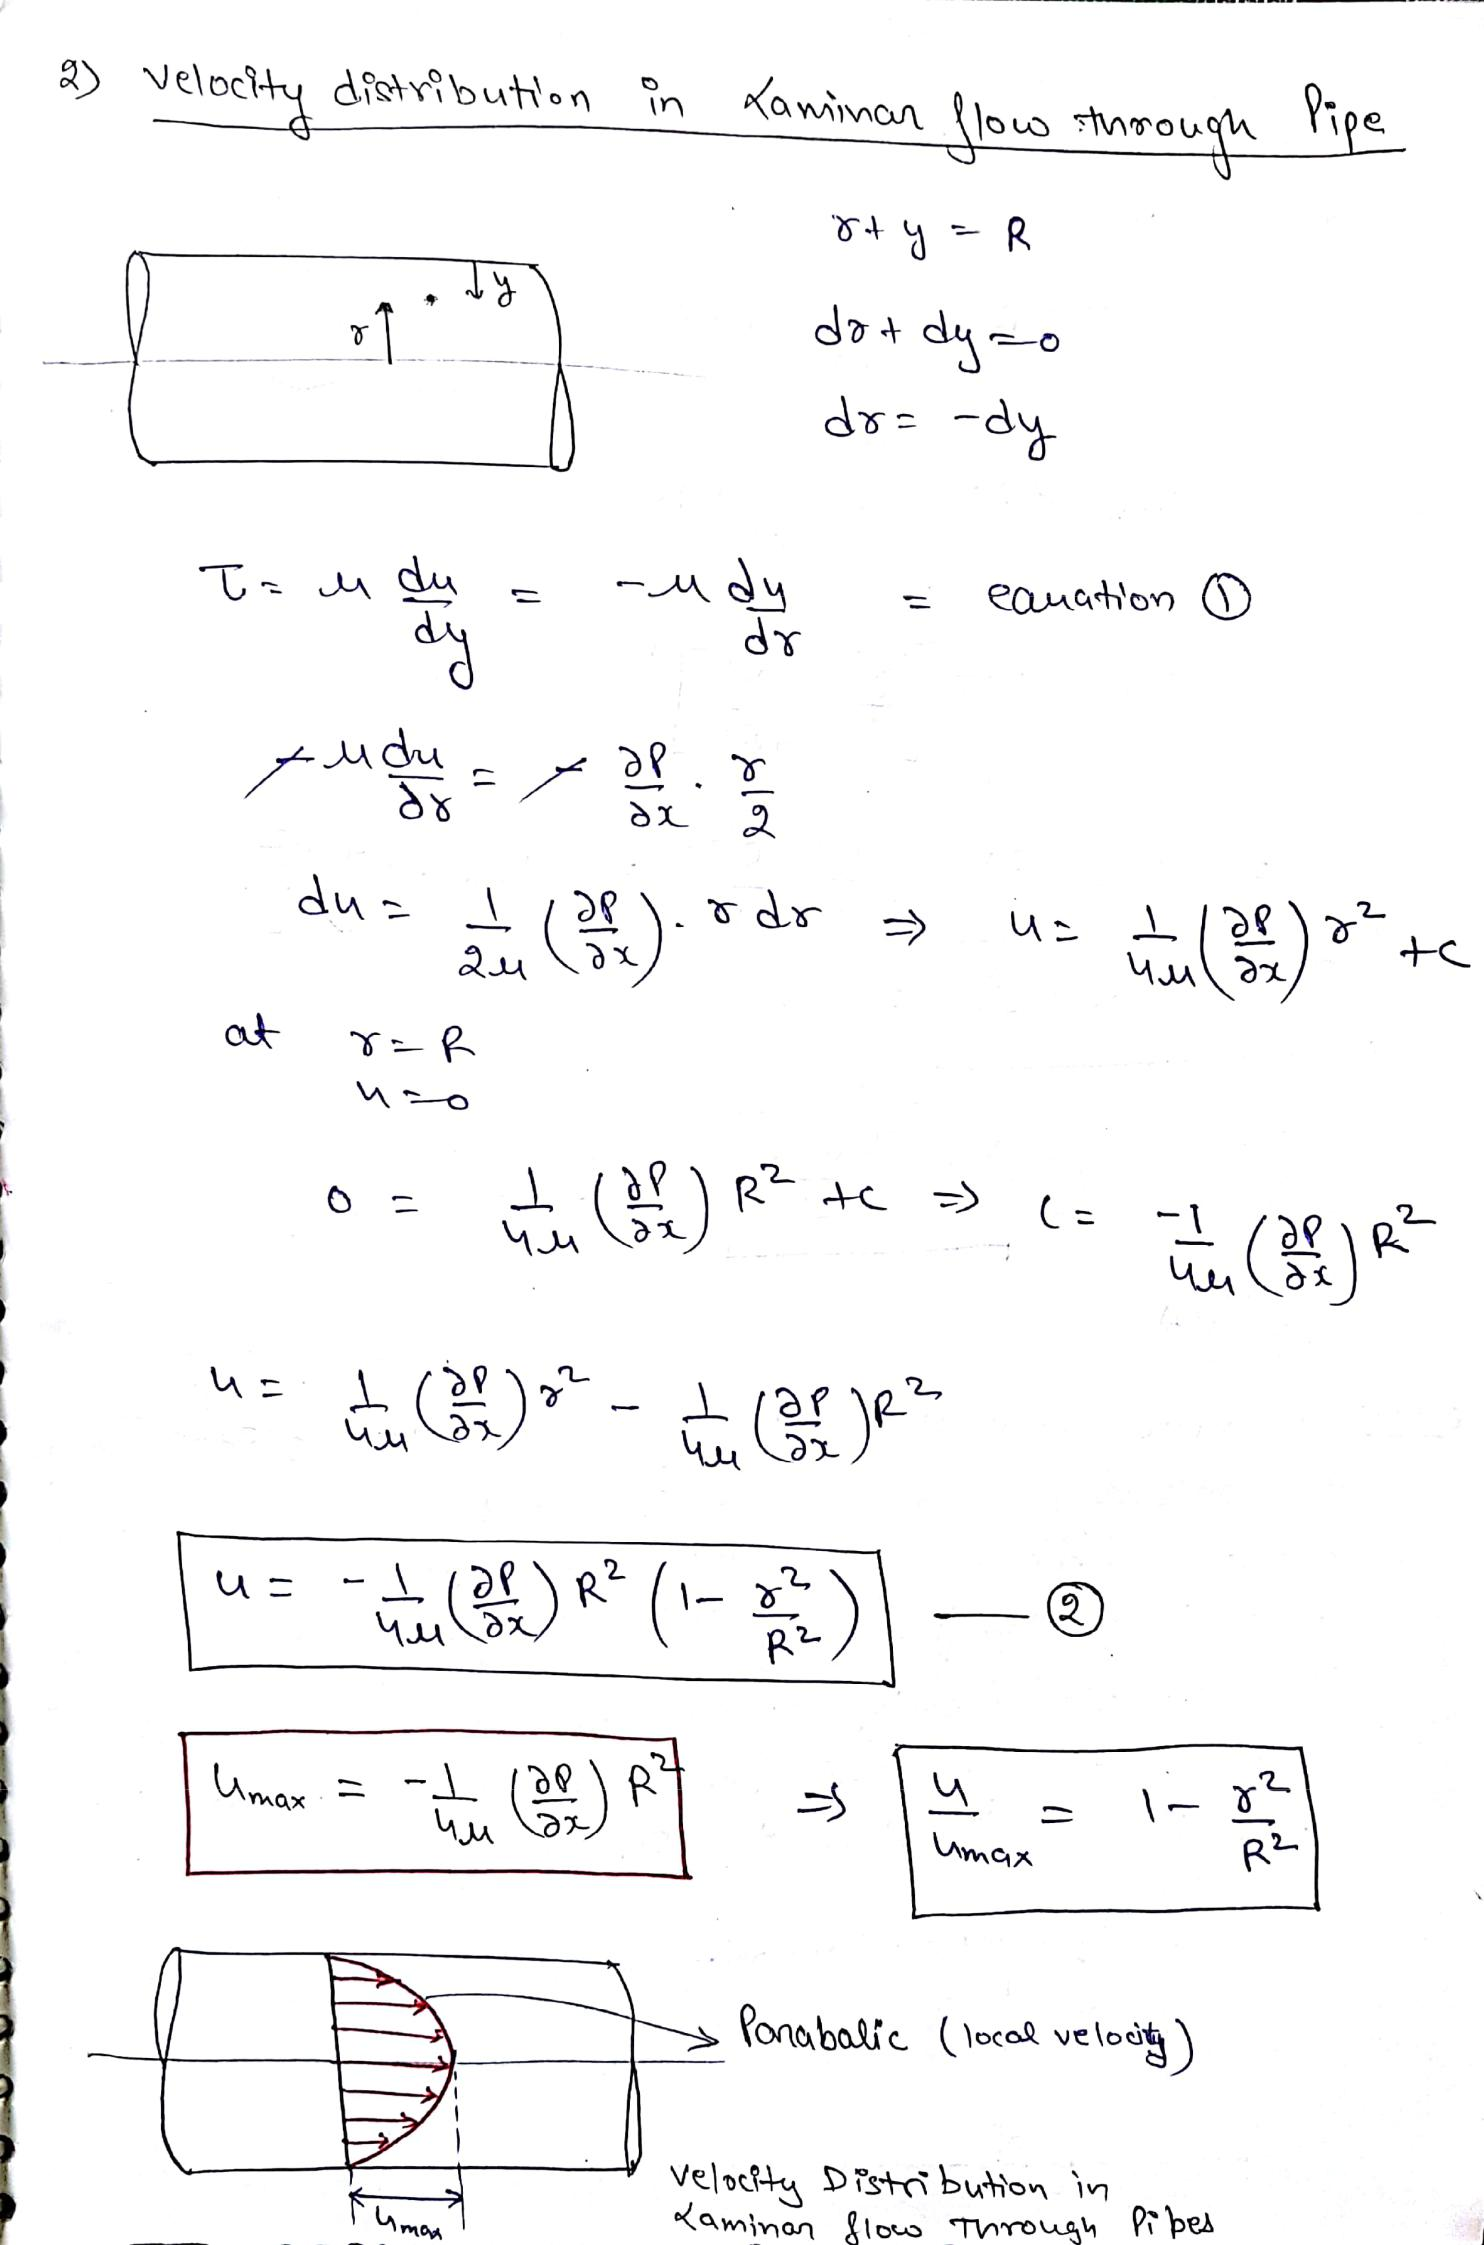 2) velocity distribution in Laminar flow through Pipe
r + y = R
y
r
dr + dy = 0
dr = -dy
τ = μ du/dy = -μ du/dr = eauation ①
-μ du/dr = - ∂P/∂x . r/2
du = 1/2μ (∂P/∂x) . r dr ⇒ u = 1/4μ (∂P/∂x) r² + c
at r = R
u = 0
0 = 1/4μ (∂P/∂x) R² + c ⇒ C = -1/4μ (∂P/∂x) R²
u = 1/4μ (∂P/∂x) r² - 1/4μ (∂P/∂x) R²
u = -1/4μ (∂P/∂x) R² (1 - r²/R²) — ②
Umax = -1/4μ (∂P/∂x) R² ⇒ u/umax = 1 - r²/R²
Parabalic (local velocity)
velocity Distribution in
Laminar flow Through Pibes
Umax